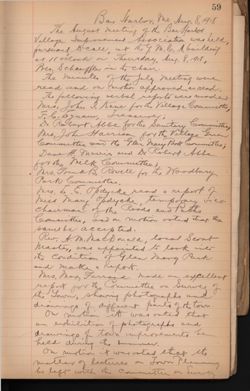 59
Bar Harbor, Me., Aug. 8, 1918
The August meeting of the Bar Harbor
Village Improvement Association was held,
pursuant to call, at the Y.M.C.A. building
at 11 o'clock on Thursday, Aug. 8, 1918,
Mrs. Schauffler in the chair.
The minutes of the July meeting were
read and on motion approved as read.
The following verbal reports were made:
Mrs. John I. Kane for the Village Committee,
Treasurer;
Dr. Robert Abbe for the Sanitary Committee;
Mrs. John Harrison for the Village Green
Committee and the Glen Mary Park Committee;
and Dr. Robert Abbe
for the Milk Committee;
Mrs. B. Rowell for the Woodbury
Park Committee.
Mrs. Opdycke read a report of
Miss Mary Opdycke, temporary
chairman of the Roads and Paths
Committee, and on motion voted that the
same be accepted.
Rev. A. M. MacDonald, Local Scout
Master, was appointed to look into
the condition of Glen Mary Park
and make a report.
Mrs. Max Farrand made an excellent
report for the Committee on Survey of
the Town, showing photographs and
drawings of different parts of the town.
On motion it was voted that
an exhibition of photographs and
drawings of Town improvements be
held during the summer.
On motion it was voted that the
matter of lectures on Town Planning
be left with the Committee on Survey